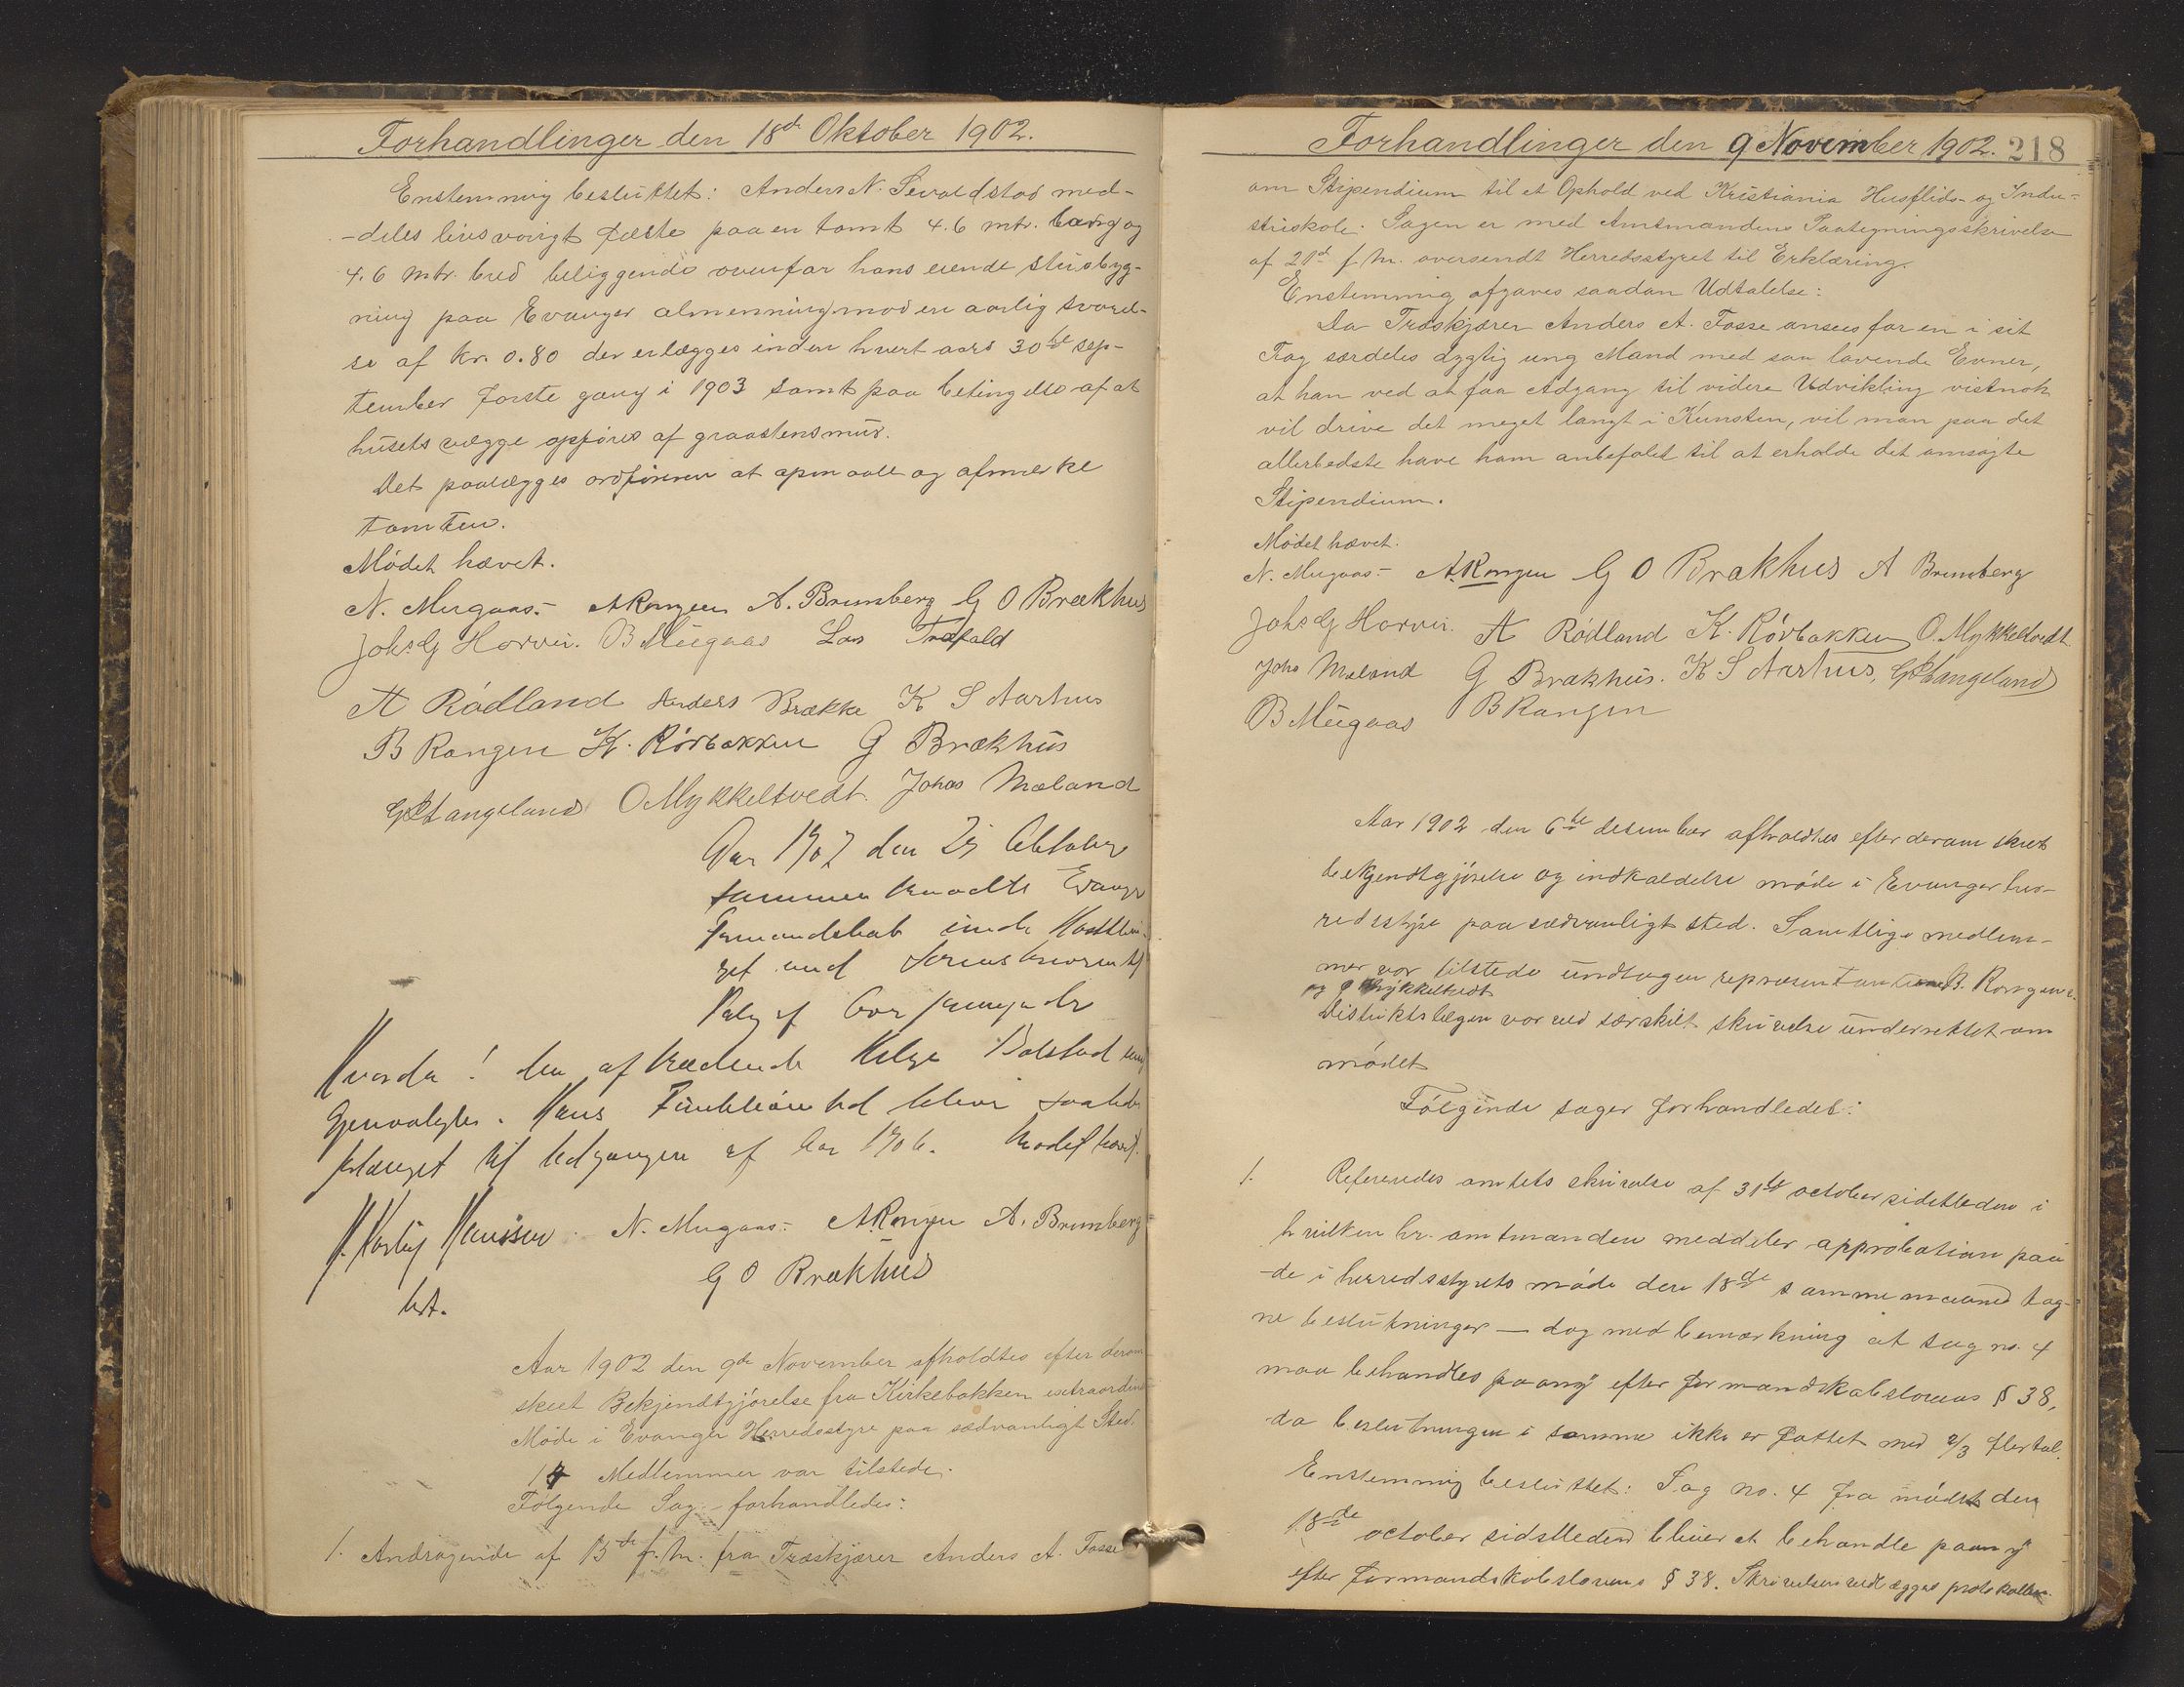 Forhandlinger den 18de Oktober 1902.
Enstemmig besluttet: Anders N. Sevaldstad med-
-deles livsvarigt fæste paa en tomt 4.6 mtr. lang og
4.6 mtr. bred beliggende ovenfor hans eiende stuebyg-
ning paa Evanger almenning mod en aarlig svarel-
se af kr. 0.80 der erlægges inden hvert aars 30te sep-
tember første gang i 1903 samt paa betingelse af at
husets vægge opføres af graastensmur.
Det paalægges ordføreren at opmaale og afmerke
tomten.
Mødet hævet.
N. Mugaas.- A Rongen A. Brunborg G O Brækhus
Johs G Horvei. B Mugaas Lars Træfald
A Rødland Anders Brække K S Aarhus
B Rongen K. Rørbakken G Brækhus
G S Langeland O Mykkeltvedt. Johas Mæland
Aar 1902 den 25 Oktober
sammentraadte Evanger
Formandskab
get med
Valg af
Hvorda! den aftrædende Helge Bolstad
Gjenvalgtes. Hans Funktionstid bliver saaledes
forlænget til Udgangen af Aar 1906. Mødet hævet.
Hansen. N. Mugaas.- A Rongen A. Brunborg
G O Brækhus
Aar 1902 den 9de November afholdtes efter derom
skeet Bekjendtgjørelse fra Kirkebakken extraordinært
Møde i Evanger Herredsstyre paa sædvanligt Sted.
14 Medlemmer var tilstede.
Følgende Sag forhandledes:
1. Andragende af 13de f. m. fra Træskjærer Anders A. Fosse
Forhandlinger den 9 November 1902. 218
om Stipendium til et Ophold ved Kristiania Husflids- og Indu-
striskole. Sagen er med Amtmandens Paategningsskrivelse
af 21de f. m. oversendt Herredsstyret til Erklæring.
Enstemmig afgaves saadan Udtalelse:
Da Træskjærer Anders A. Fosse ansees for en i sit
Fag særdeles dygtig ung Mand med saa lovende Evner,
at han ved at faa Adgang til videre Udvikling vistnok
vil drive det meget langt i Kunsten, vil man paa det
allerbedste have ham anbefalet til at erholde det ansøgte
Stipendium.
Mødet hævet.
N. Mugaas.- A. Rongen G O Brækhus A Brunborg
Johs G Horvei. A Rødland K. Rørbakken O. Mykkeltvedt
Johs Mæland G Brækhus. K S Aarhus, G S Langeland
B Mugaas B Rongen
Aar 1902 den 6te desember afholdtes efter derom skeet
bekjendtgjørelse og indkaldelse møde i Evanger her-
redsstyre paa sædvanligt sted. Samtlige medlem-
mer var tilstede undtagen repræsentanterne B. Rongen
og O Mykkeltvedt.
Distriktslægen var ved særskilt skrivelse underrettet om
mødet
Følgende sager forhandledes:
1. Refereredes amtets skrivelse af 31te october sidstleden i
hvilken hr. amtmanden meddeler approbation paa
-de i herredsstyrets møde den 18de samme maaned tag-
ne beslutninger — dog med bemærkning at sag no. 4
maa behandles paany efter formandskabslovens § 38,
da beslutningen i samme ikke er fattet med 2/3 flertal.
Enstemmig besluttet: Sag no. 4 fra mødet den
18de october sidstleden bliver at behandle paany
efter formandskabslovens § 38. Skrivelsen vedlægges protokollen.